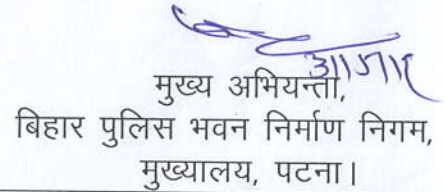 मुख्य अभियन्ता,
बिहार पुलिस भवन निर्माण निगम,
मुख्यालय, पटना।